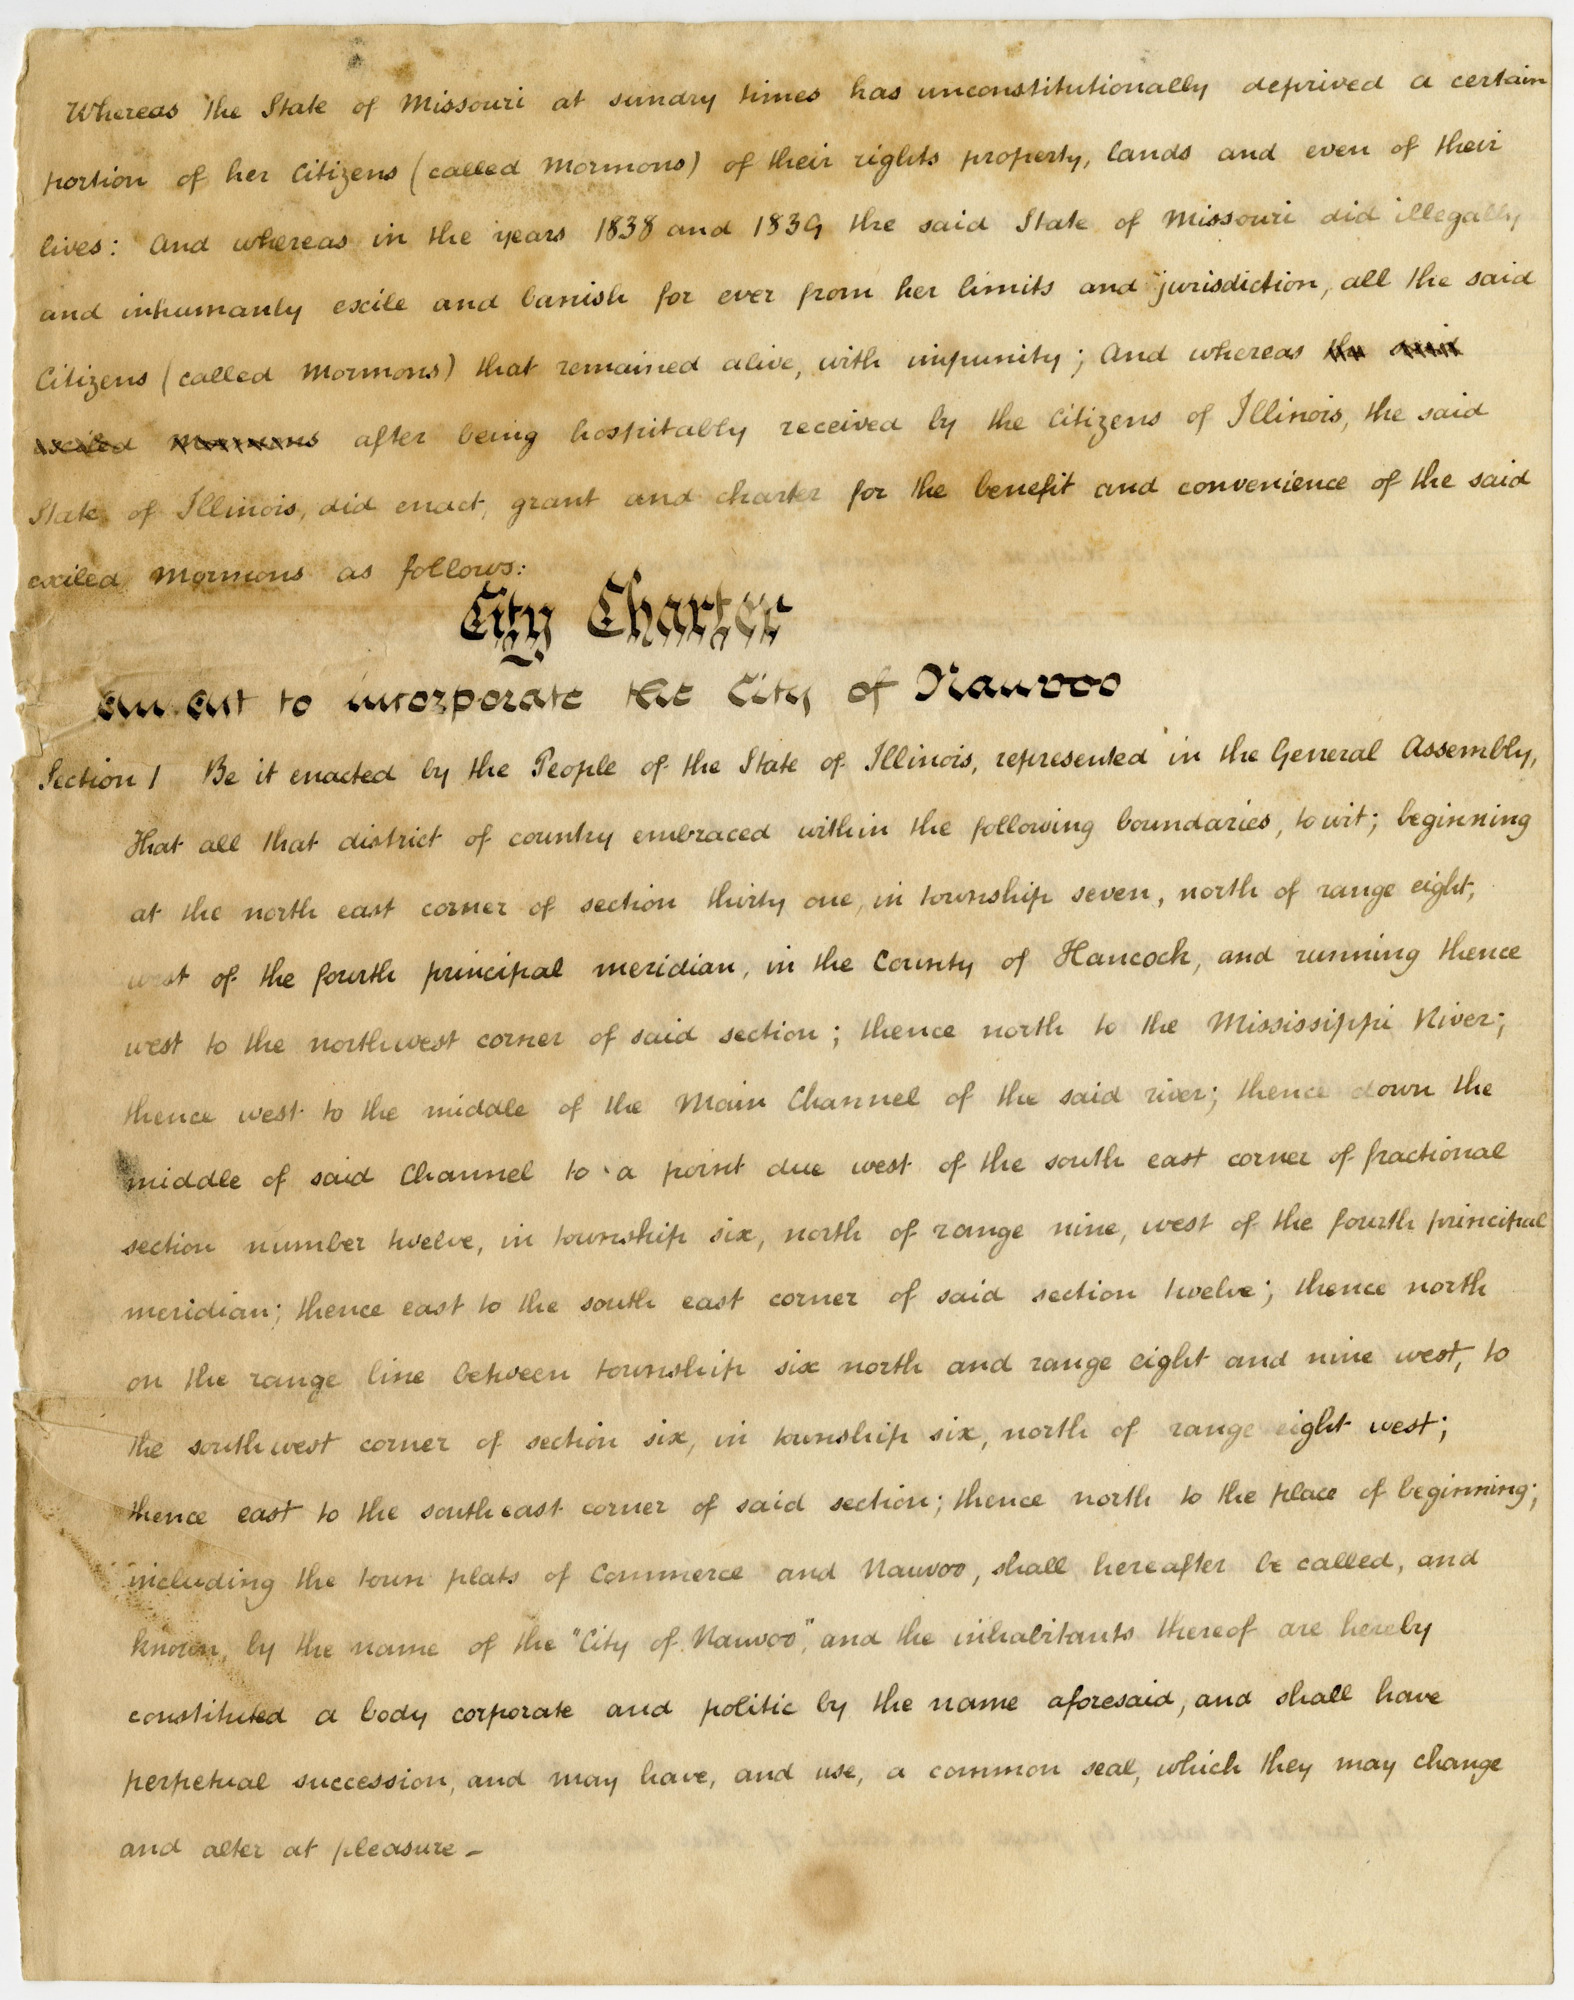 Whereas the State of Missouri at sundry times has unconstitutionally deprived a certain
portion of her Citizens (called Mormons) of their rights property, lands and even of their
lives: And whereas in the years 1838 and 1839 the said State of Missouri did illegally
and inhumanly excile and banish for ever from her limits and jurisdiction, all the said
Citizens (called Mormons) that remained alive, with impunity; And whereas the said
exciled Mormons after being hospitably received by the Citizens of Illinois, the said
State of Illinois, did enact, grant and charter for the benefit and convenience of the said
exciled Mormons as follows:
City Charter
an act to incorporate the City of Nauvoo
Section 1 Be it enacted by the People of the State of Illinois, represented in the General Assembly,
That all that district of country embraced within the following boundaries, to wit; beginning
at the north east corner of section thirty one, in township seven, north of range eight,
west of the fourth principal meridian, in the County of Hancock, and running thence
west to the northwest corner of said section; thence north to the Mississippi River;
thence west to the middle of the Main Channel of the said river; thence down the
middle of said Channel to a point due west of the south east corner of fractional
section number twelve, in township six, north of range nine, west of the fourth principal
meridian; thence east to the south east corner of said section twelve; thence north
on the range line between township six north and range eight and nine west, to
the southwest corner of section six, in township six, north of range eight west;
thence east to the southeast corner of said section; thence north to the place of beginning;
including the town plats of Commerce and Nauvoo, shall hereafter be called, and
known, by the name of the "City of Nauvoo", and the inhabitants thereof are hereby
constituted a body corporate and politic by the name aforesaid, and shall have
perpetual succession, and may have, and use, a common seal, which they may change
and alter at pleasure –